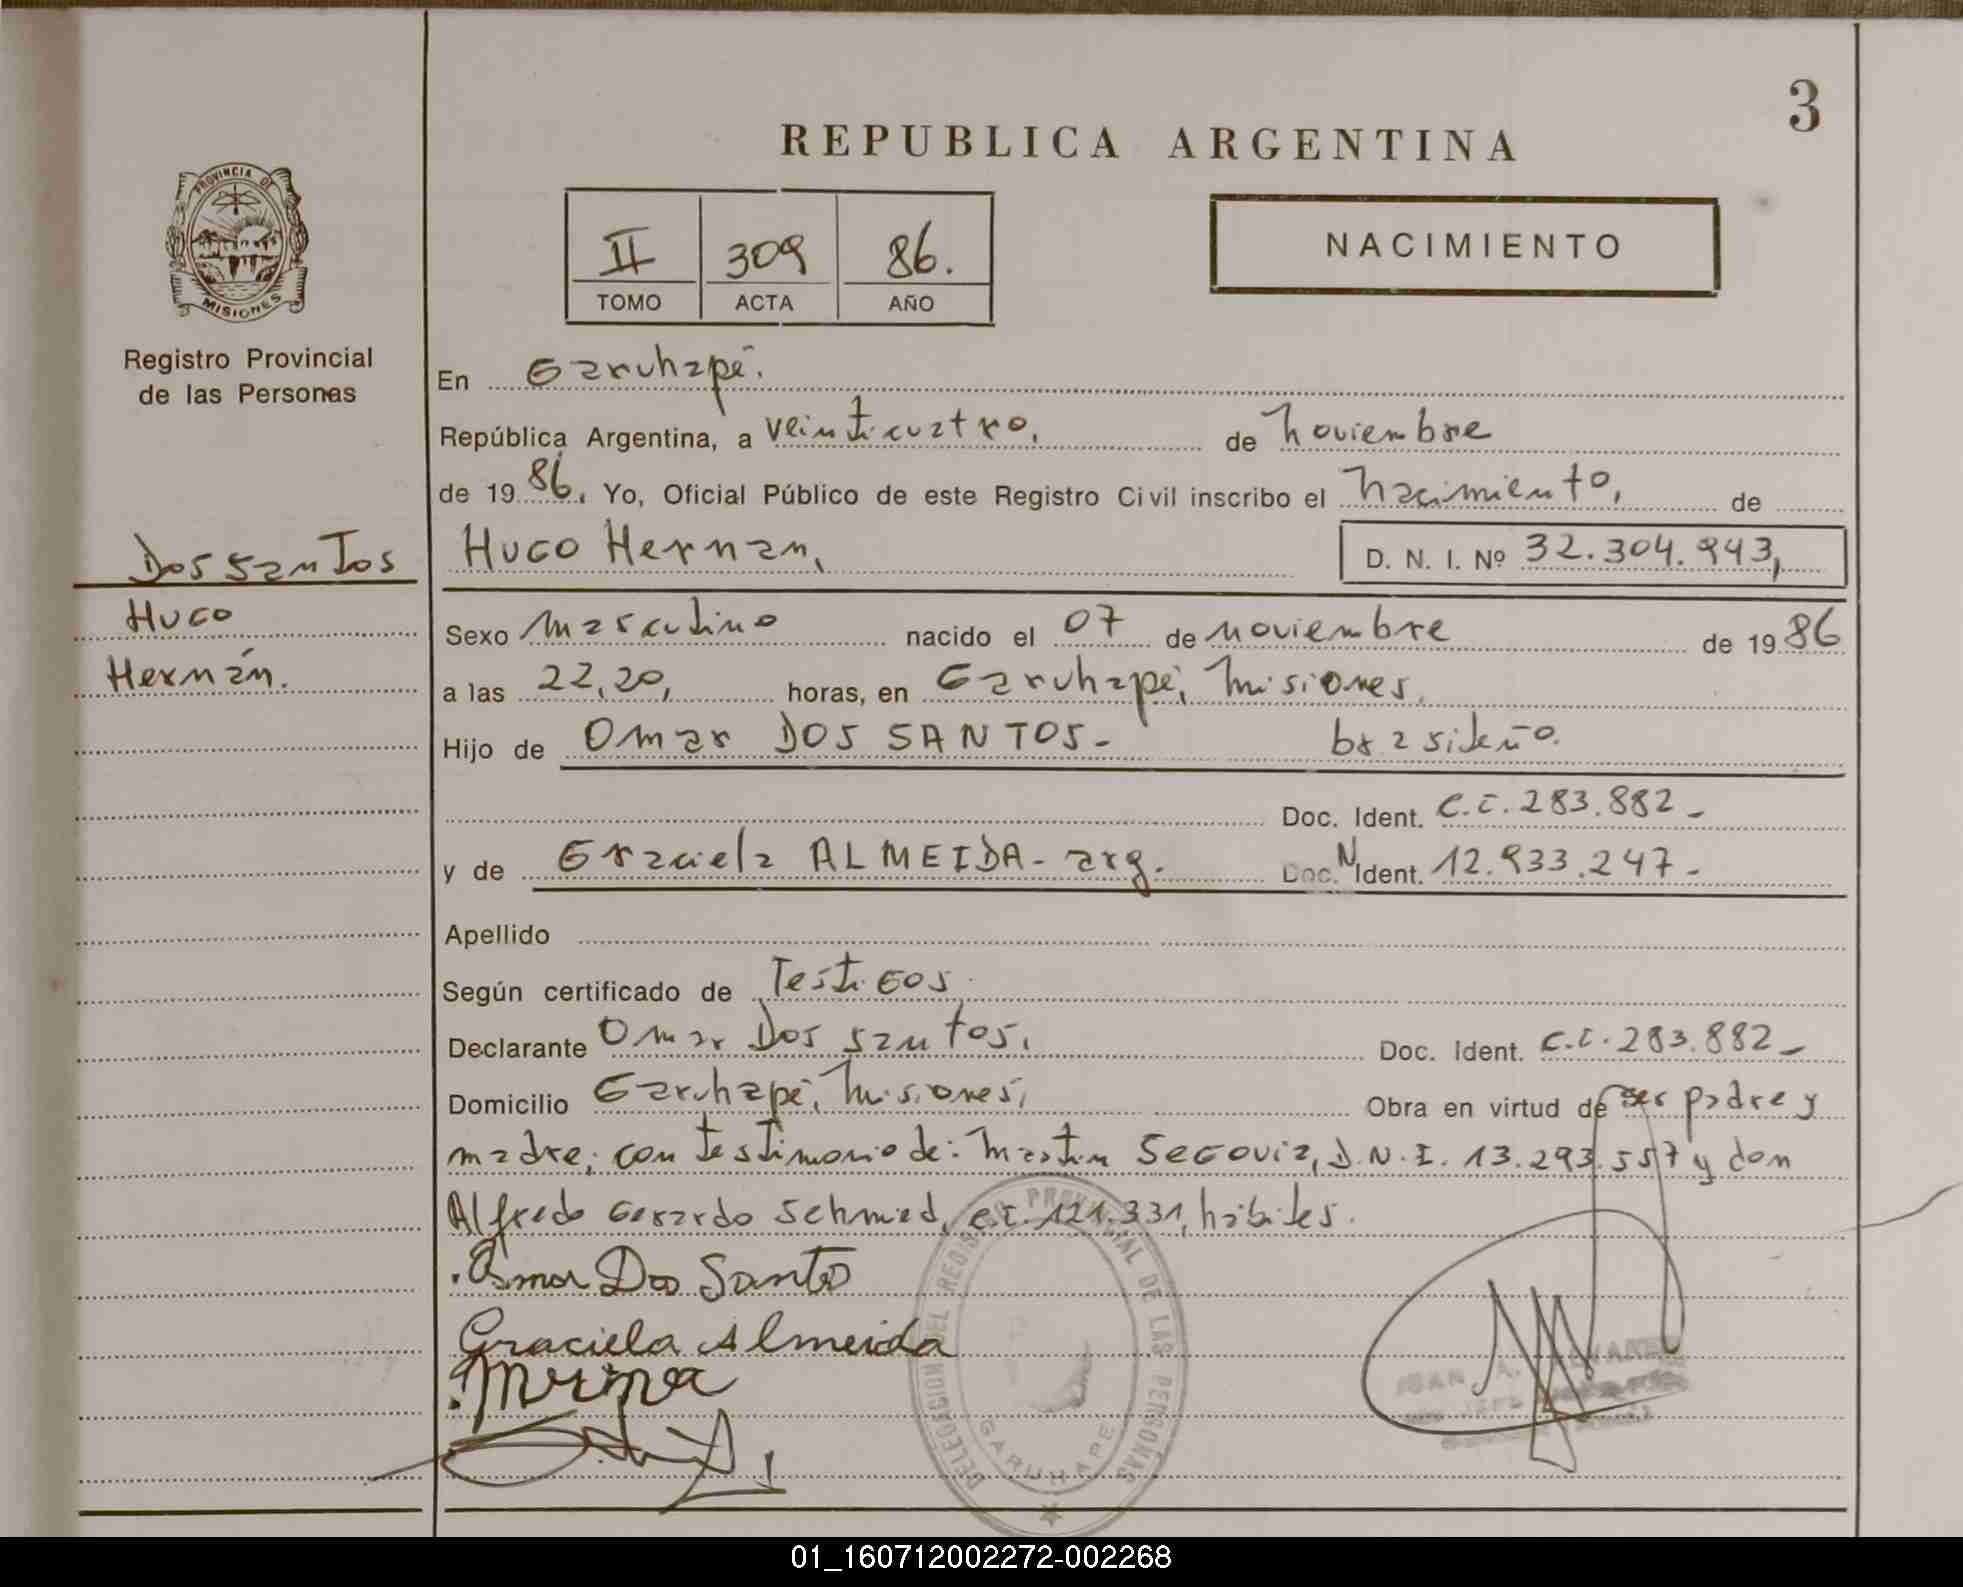 3
REPUBLICA ARGENTINA
PROVINCIA DE
MISIONES
Registro Provincial
de las Personas
II 309 86.
TOMO ACTA AÑO
NACIMIENTO
En Garuhapé.
República Argentina, a veinticuatro, de noviembre
de 1986. Yo, Oficial Público de este Registro Civil inscribo el nacimiento, de
Dos santos
Hugo
Hernán.
Hugo Hernan, D. N. I. Nº 32.304.943,
Sexo masculino nacido el 07 de noviembre de 1986
a las 22,20, horas, en Garuhapé, misiones,
Hijo de Omar DOS SANTOS- brasileño.
Doc. Ident. C.I. 283.882-
y de Graciela ALMEIDA- arg. Doc. N Ident. 12.933.247-
Apellido
Según certificado de Testigos
Declarante Omar Dos santos, Doc. Ident. C.I. 283.882-
Domicilio Garuhapé, misiones, Obra en virtud de ser padre y
madre, con testimonio de: Martin Segovia, D.N.I. 13.293.557 y don
Alfredo Gerardo Schmied, C.I. 121.331, hábiles.
Omar Dos Santos
Graciela Almeida
DELEGACION DEL REGISTRO PROVINCIAL DE LAS PERSONAS
GARUHAPE
JUAN A.
01_160712002272-002268